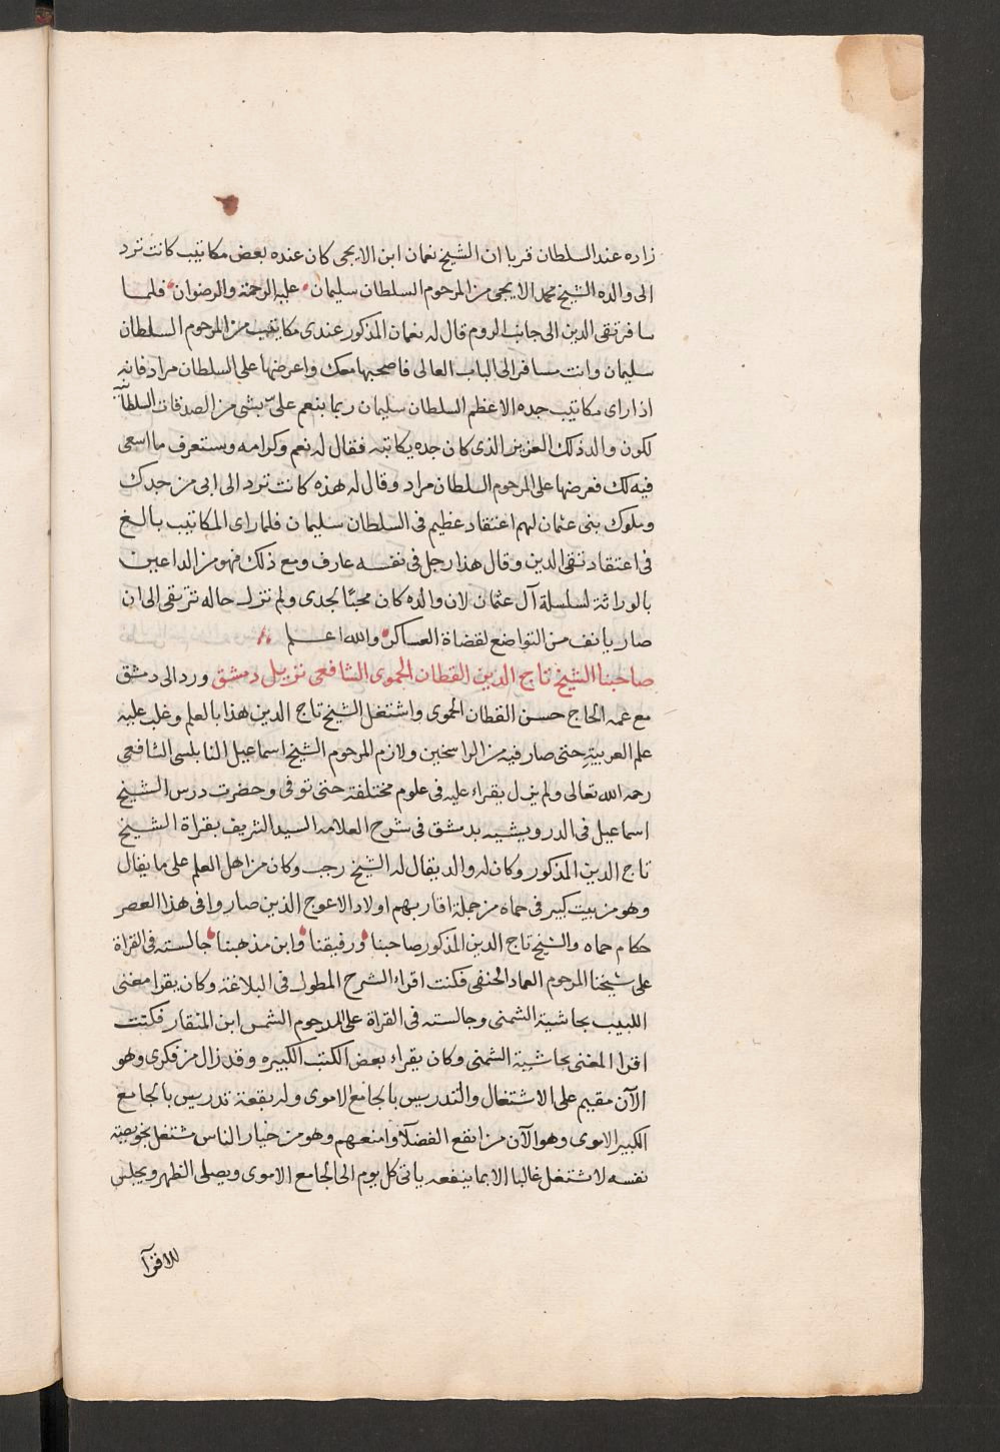 زاده عند السلطان قربا ان الشيخ نعمان ابن الايجى كان عنده بعض مكاتيب كانت ترد
الى والده الشيخ محمد الايجى من المرحوم السلطان سليمان عليه الرحمة والرضوان فلما
سافر تقى الدين الى جانب الروم قال له نعمان المذكور عندى مكاتيب من المرحوم السلطان
سليمان وانت مسافر الى الباب العالى فاصحبها معك واعرضها على السلطان مراد فانه
اذا راى مكاتيب جده الاعظم السلطان سليمان ربما ينعم على بشى من الصدقات السلطانية
لكون والد ذلك العزيز الذى كان جده يكاتبه فقال له نعم وكرامه وستعرف ما اسعى
فيه لك فعرضها على المرحوم السلطان مراد وقال له هذه كانت ترد الى ابى من جدك
وملوك بنى عثمان لهم اعتقاد عظيم فى السلطان سليمان فلما راى المكاتيب بالغ
فى اعتقاد تقى الدين وقال هذا رجل فى نفسه عارف ومع ذلك فهو من الداعين
بالوراثة لسلسلة آل عثمان لان والده كان محبًا لجدى ولم تزل حاله تترقى الى ان
صار يانف من التواضع لقضاة العساكر والله اعلم
صاحبنا الشيخ تاج الدين القطان الحموى الشافعى نزيل دمشق ورد الى دمشق
مع عمه الحاج حسن القطان الحموى واشتغل الشيخ تاج الدين هذا بالعلم وغلب عليه
علم العربية حتى صار فيه من الراسخين ولازم المرحوم الشيخ اسماعيل النابلسى الشافعى
رحمه الله تعالى ولم يزل يقراء عليه فى علوم مختلفة حتى توفى وحضرت درس الشيخ
اسماعيل فى الدرويشيه بدمشق فى شرح العلامه السيد الشريف بقراة الشيخ
تاج الدين المذكور وكان له والد يقال له الشيخ رجب وكان من اهل العلم على ما يقال
وهو من بيت كبير فى حماه من جملة اقاربهم اولاد الاعوج الذين صاروا فى هذا العصر
حكام حماه والشيخ تاج الدين المذكور صاحبنا ورفيقنا وابن مذهبنا جالسته فى القراة
على شيخنا المرحوم العماد الحنفى فكنت اقراء الشرح المطول فى البلاغة وكان يقرا مغنى
اللبيب بحاشية الشمنى وجالسته فى القراة على المرحوم الشمس ابن المنقار فكنت
اقرا المغنى بحاشية الشمنى وكان يقراء بعض الكتب الكبيره وقد زال من فكرى وهو
الآن مقيم على الاشتغال والتدريس بالجامع الاموى وله بقعة تدريس بالجامع
الكبير الاموى وهو الآن من انفع الفضلا وامنعهم وهو من خيار الناس مشتغل بخويصة
نفسه لا يشتغل غالبا الا بما ينفعه ياتى كل يوم الى الجامع الاموى ويصلى الظهر ويجلس
للاقرآ